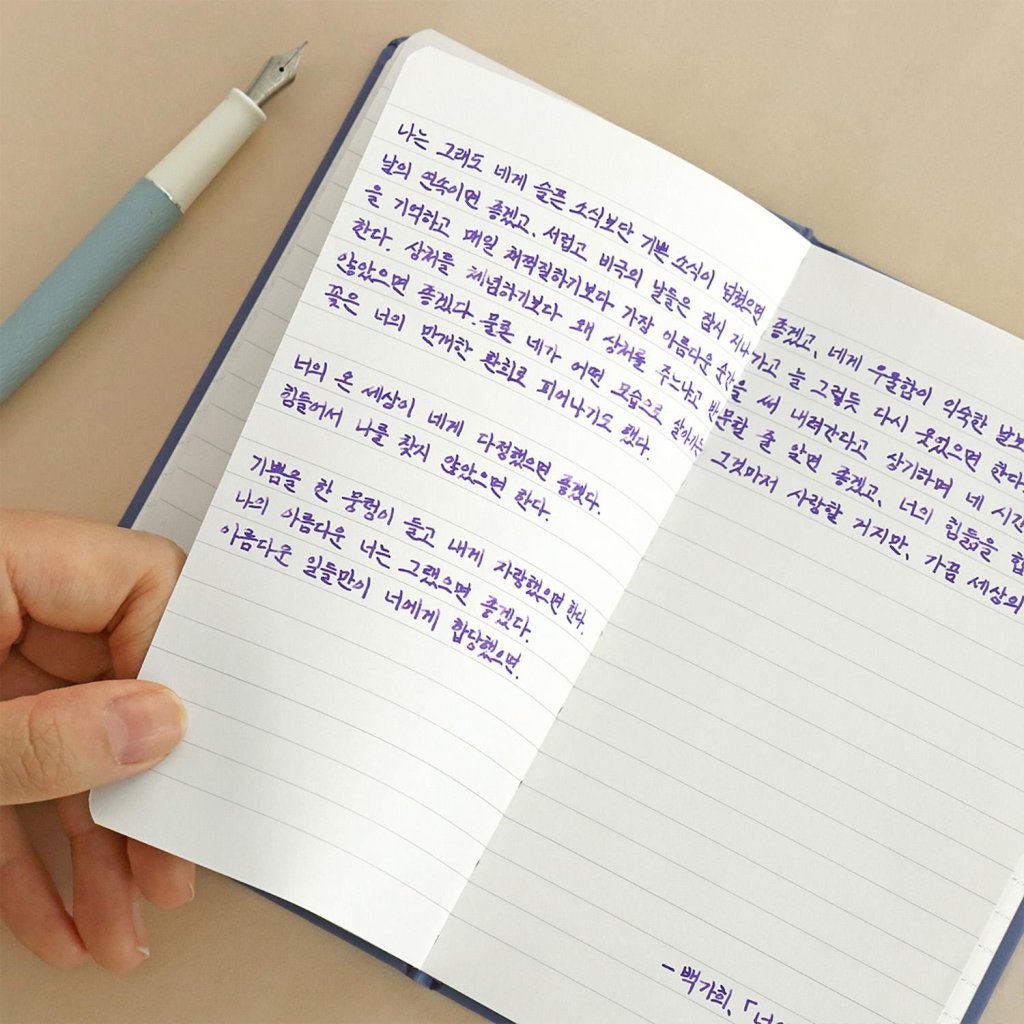 나는 그래도 네게 슬픈 소식보단 기쁜 소식이 넘쳤으면 좋겠고, 네게 우울함이 익숙한 날보
날의 연속이면 좋겠고, 서럽고 비극의 날들은 잠시 지나가고 늘 그렇듯 다시 웃었으면 한다.
을 기억하고 매일 채찍질하기보다 가장 아름다운 순간을 써 내려간다고 상기하며 네 시간
한다. 상처를 체념하기보다 왜 상처를 주느냐고 반문할 줄 알면 좋겠고, 너의 힘듦을 합
않았으면 좋겠다. 물론 네가 어떤 모습으로 살아가든 그것마저 사랑할 거지만, 가끔 세상의
꽃은 너의 만개한 환희로 피어나기도 했다.
너의 온 세상이 네게 다정했으면 좋겠다.
힘들어서 나를 찾지 않았으면 한다.
기쁨을 한 뭉텅이 들고 내게 자랑했으면 한다.
나의 아름다운 너는 그랬으면 좋겠다.
아름다운 일들만이 너에게 합당했으면.
- 백가희, 「너의